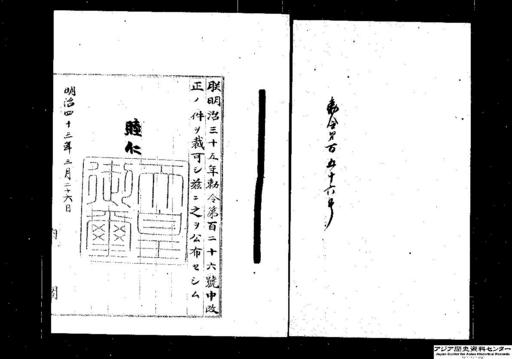 勅令第百五十六号
朕明治三十五年勅令第百二十六號中改
正ノ件ヲ裁可シ茲ニ之ヲ公布セシム
睦仁
天皇御璽
明治四十三年三月二十六日
内閣
アジア歴史資料センター
Japan Center for Asian Historical Records